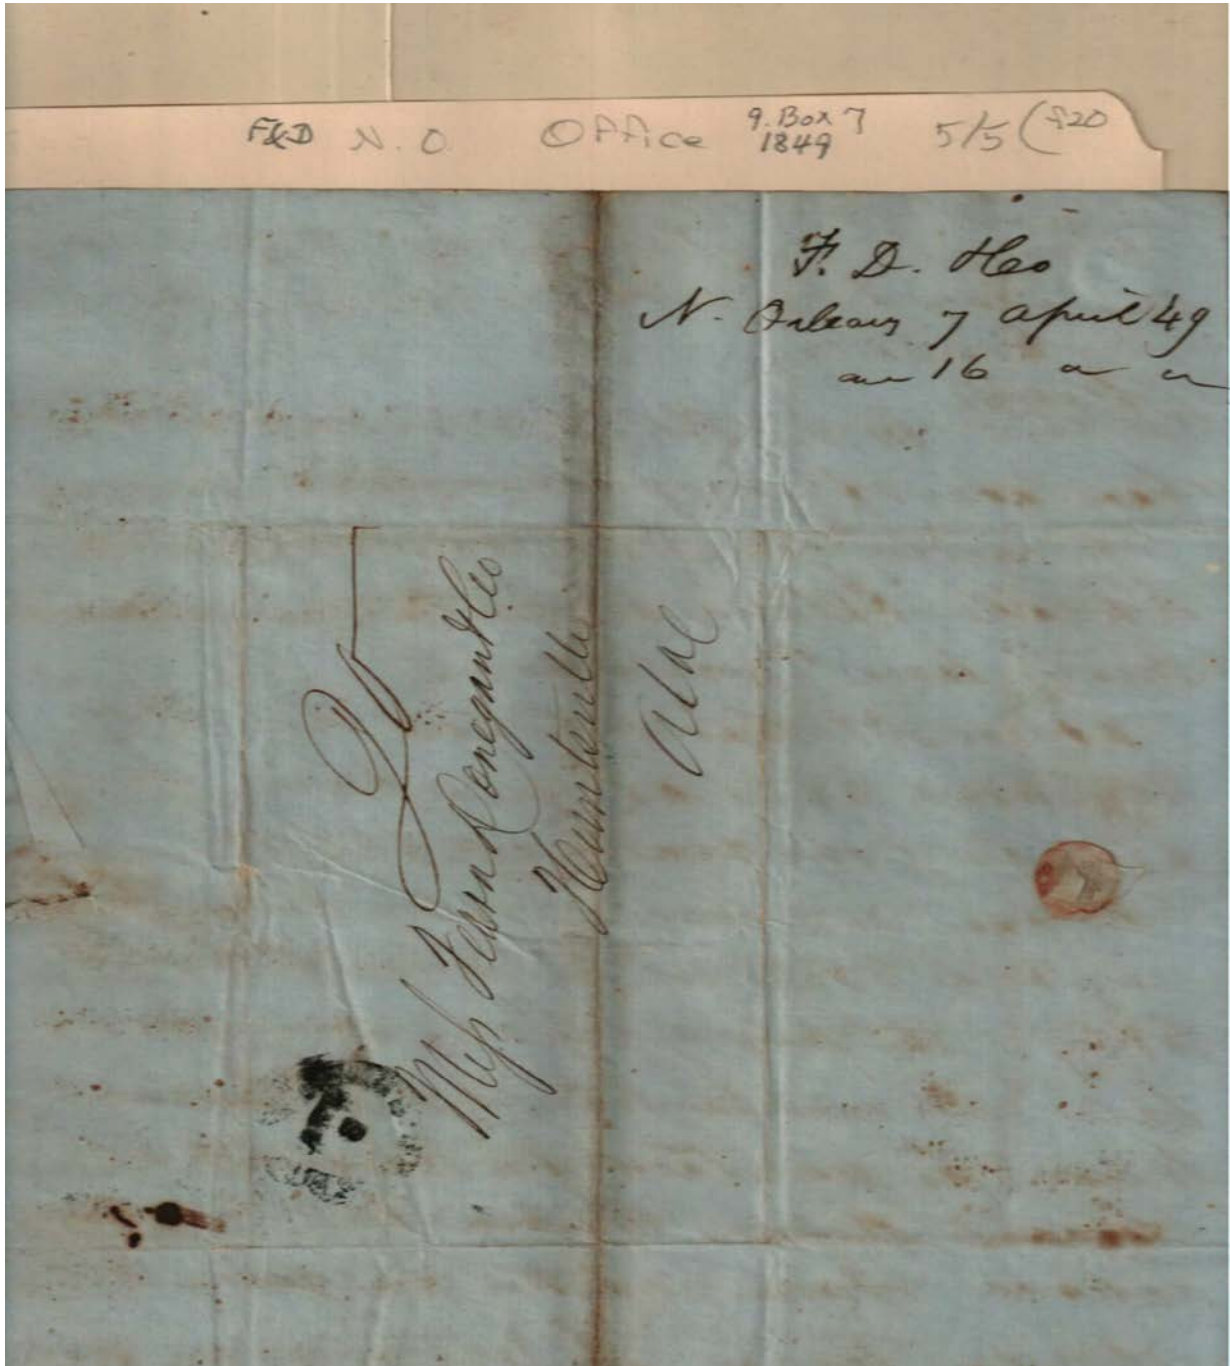 F&D N. O. Office 9. Box 7 1849 5/5 (920
F. D. & Co
N. Orleans 7 April 49
an 16
Mess Fearn Donegan & Co
Huntsville
Ala